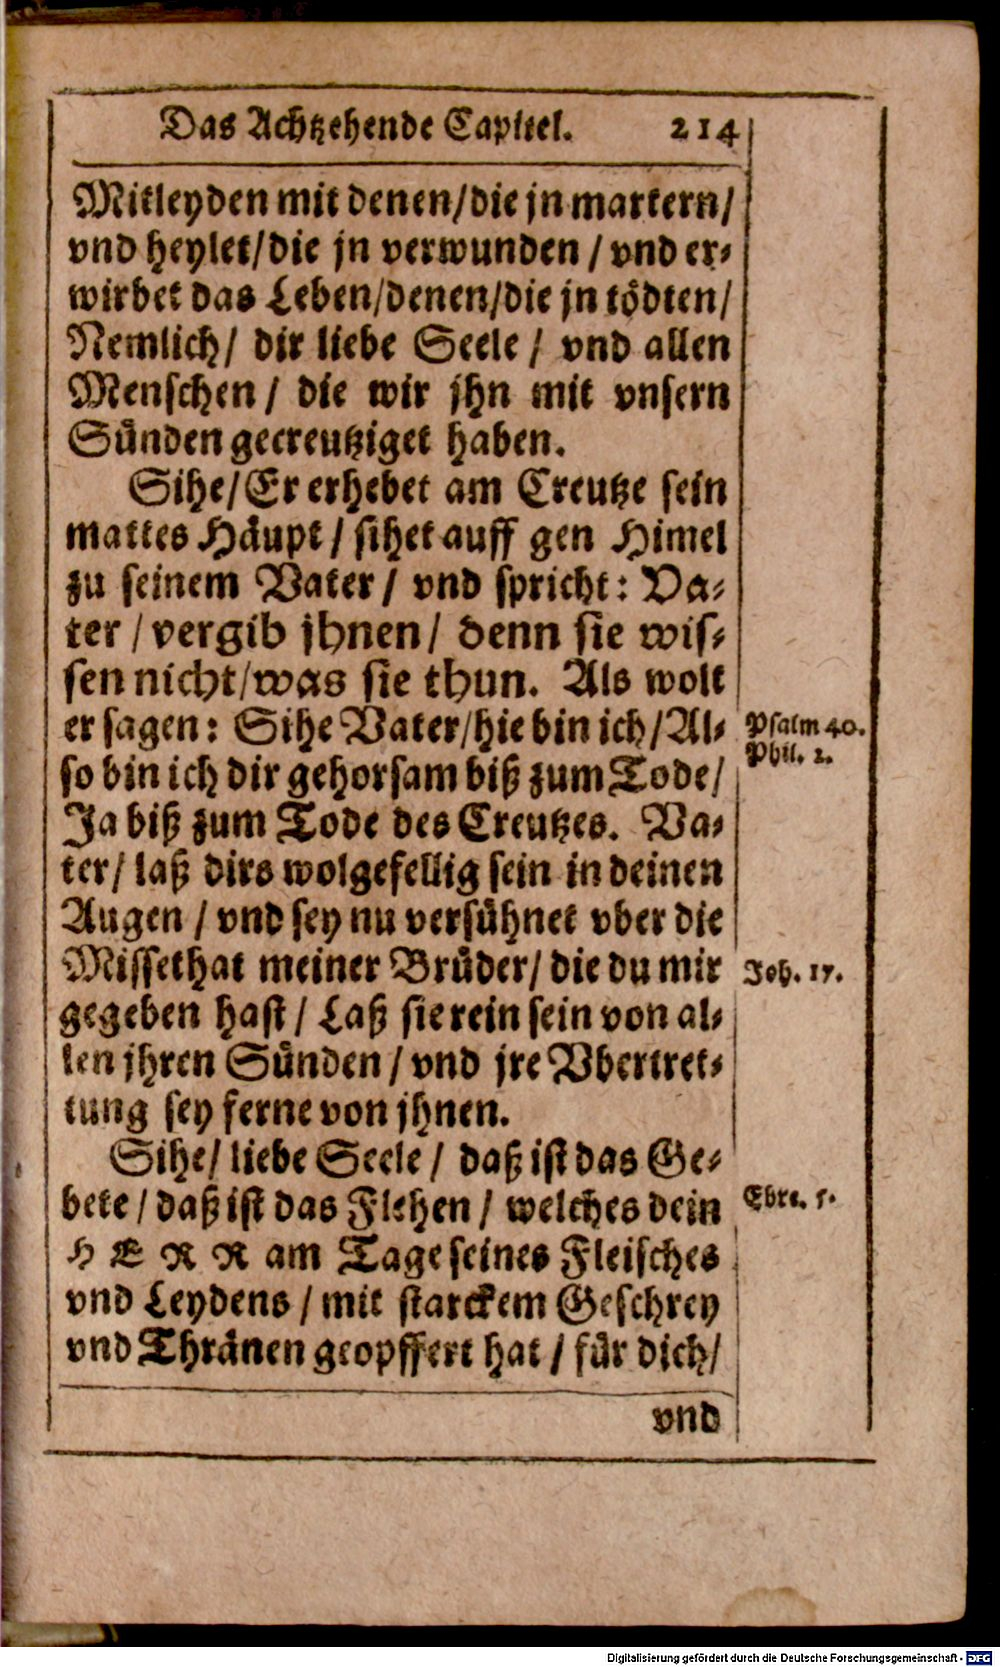 Das Achtzehende Capittel. 214
Mitleyden mit denen/die jn martern/
vnd heylet/die jn verwunden / vnd er-
wirbet das Leben/denen/die jn tödten/
Nemlich/ dir liebe Seele / vnd allen
Menschen / die wir jhn mit vnsern
Sünden gecreutziget haben.
Sihe/Er erhebet am Creutze sein
mattes Häupt / sihet auff gen Himel
zu seinem Vater / vnd spricht: Va-
ter / vergib jhnen/ denn sie wis-
sen nicht/was sie thun. Als wolt
er sagen: Sihe Vater/hie bin ich/Al-
Psalm 40.
so bin ich dir gehorsam biß zum Tode/
Phil. 2.
Ja biß zum Tode des Creutzes. Va-
ter/ laß dirs wolgefellig sein in deinen
Augen / vnd sey nu versühnet vber die
Missethat meiner Brüder/ die du mir
Joh. 17.
gegeben hast / Laß sie rein sein von al-
len jhren Sünden / vnd jre Vbertret-
tung sey ferne von jhnen.
Sihe/ liebe Seele / daß ist das Ge-
bete / daß ist das Flehen / welches dein
Ebre. 5.
HERR am Tage seines Fleisches
vnd Leydens / mit starckem Geschrey
vnd Thränen geopffert hat / für dich/
vnd
Digitalisierung gefördert durch die Deutsche Forschungsgemeinschaft - DFG